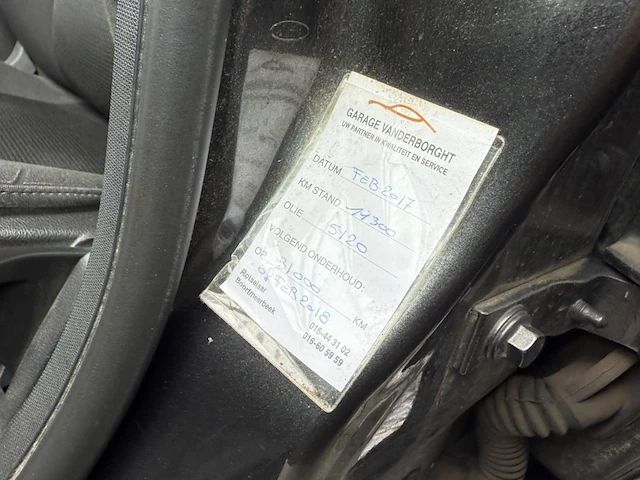 GARAGE VANDERBORGHT
UW PARTNER IN KWALITEIT EN SERVICE
DATUM FEB 2017
KM STAND 19300
OLIE 5/20
VOLGEND ONDERHOUD:
OP 31000 KM
of FEB 2018
Rotselaar 016-44 31 02
Boortmeerbeek 016-60 59 59